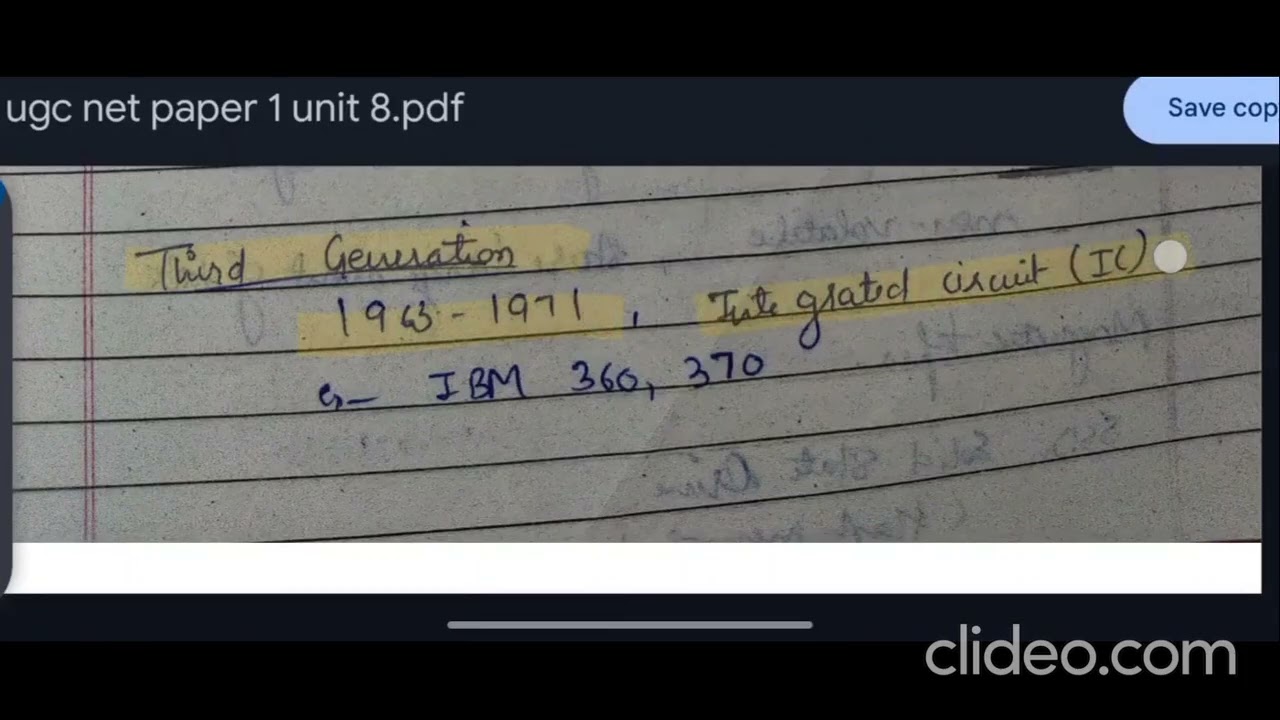 ugc net paper 1 unit 8.pdf
Save cop
Third Generation
1963 - 1971, Integrated circuit (IC)
IBM 360, 370
clideo.com